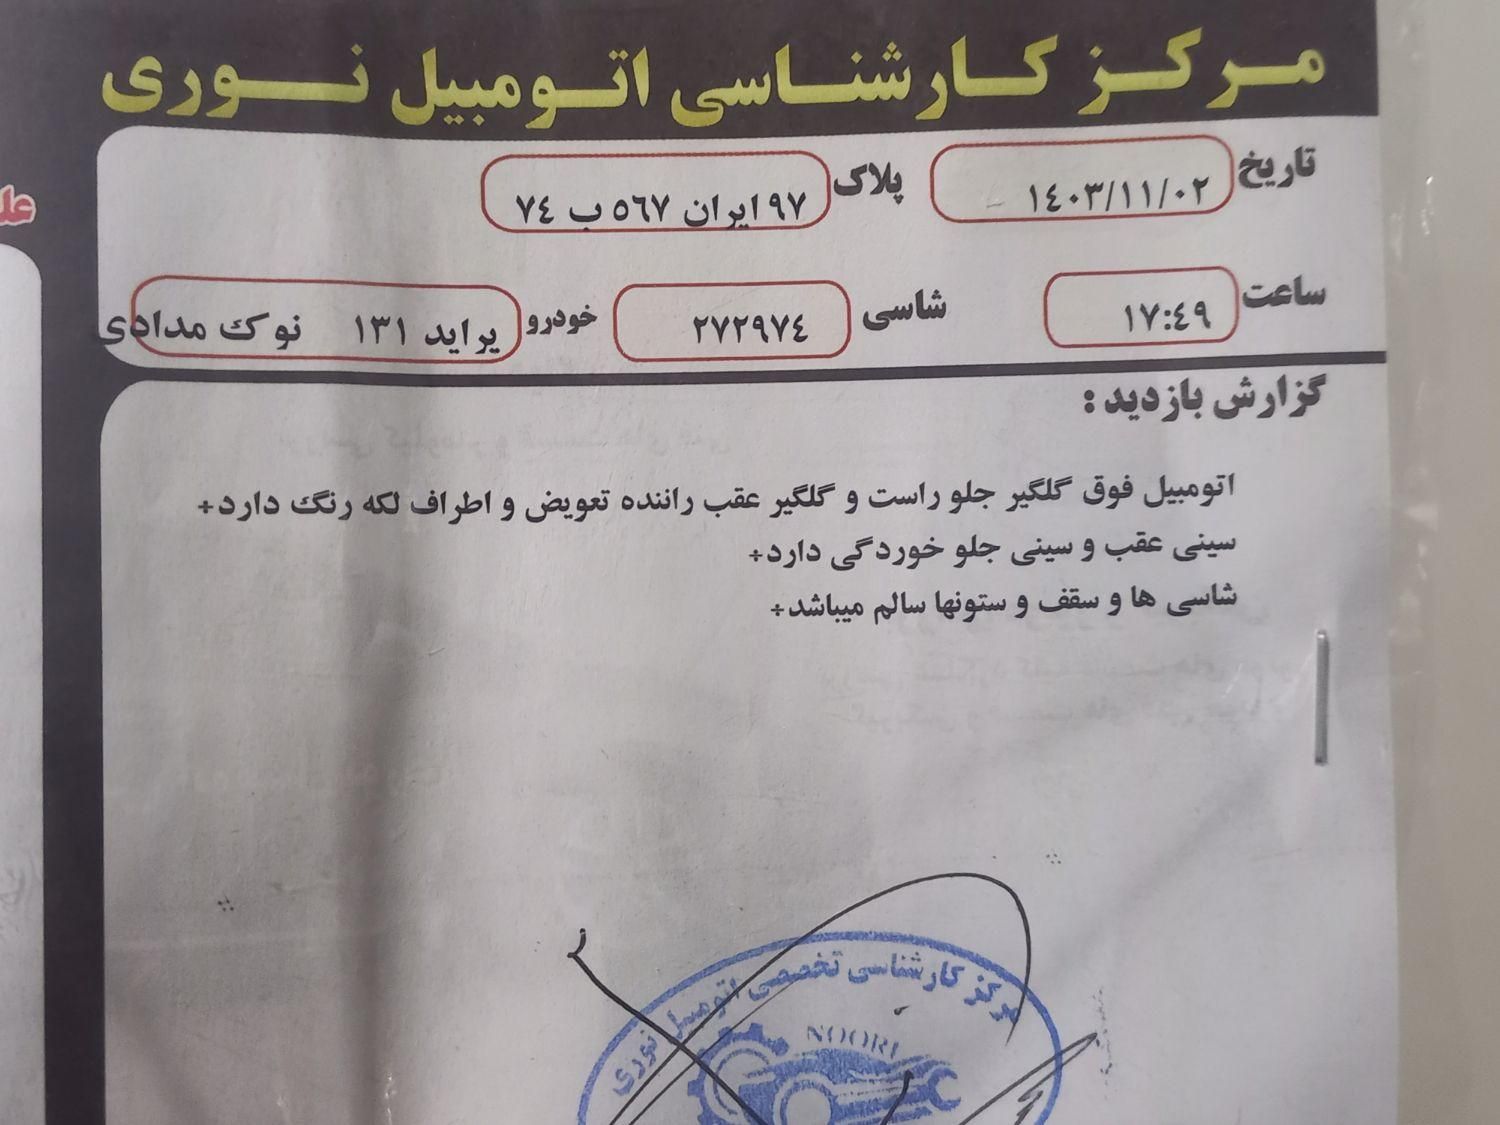 مرکز کارشناسی اتومبیل نوری
تاریخ ۱۴۰۳/۱۱/۰۲ پلاک ۹۷ ایران ۵۶۷ ب ۷۴
ساعت ۱۷:۴۹ شاسی ۲۷۲۹۷۴ خودرو پراید ۱۳۱ نوک مدادی
گزارش بازدید :
اتومبیل فوق گلگیر جلو راست و گلگیر عقب راننده تعویض و اطراف لکه رنگ دارد÷
سینی عقب و سینی جلو خوردگی دارد÷
شاسی ها و سقف و ستونها سالم میباشد÷
مرکز کارشناسی تخصصی اتومبیل نوری
NOORI